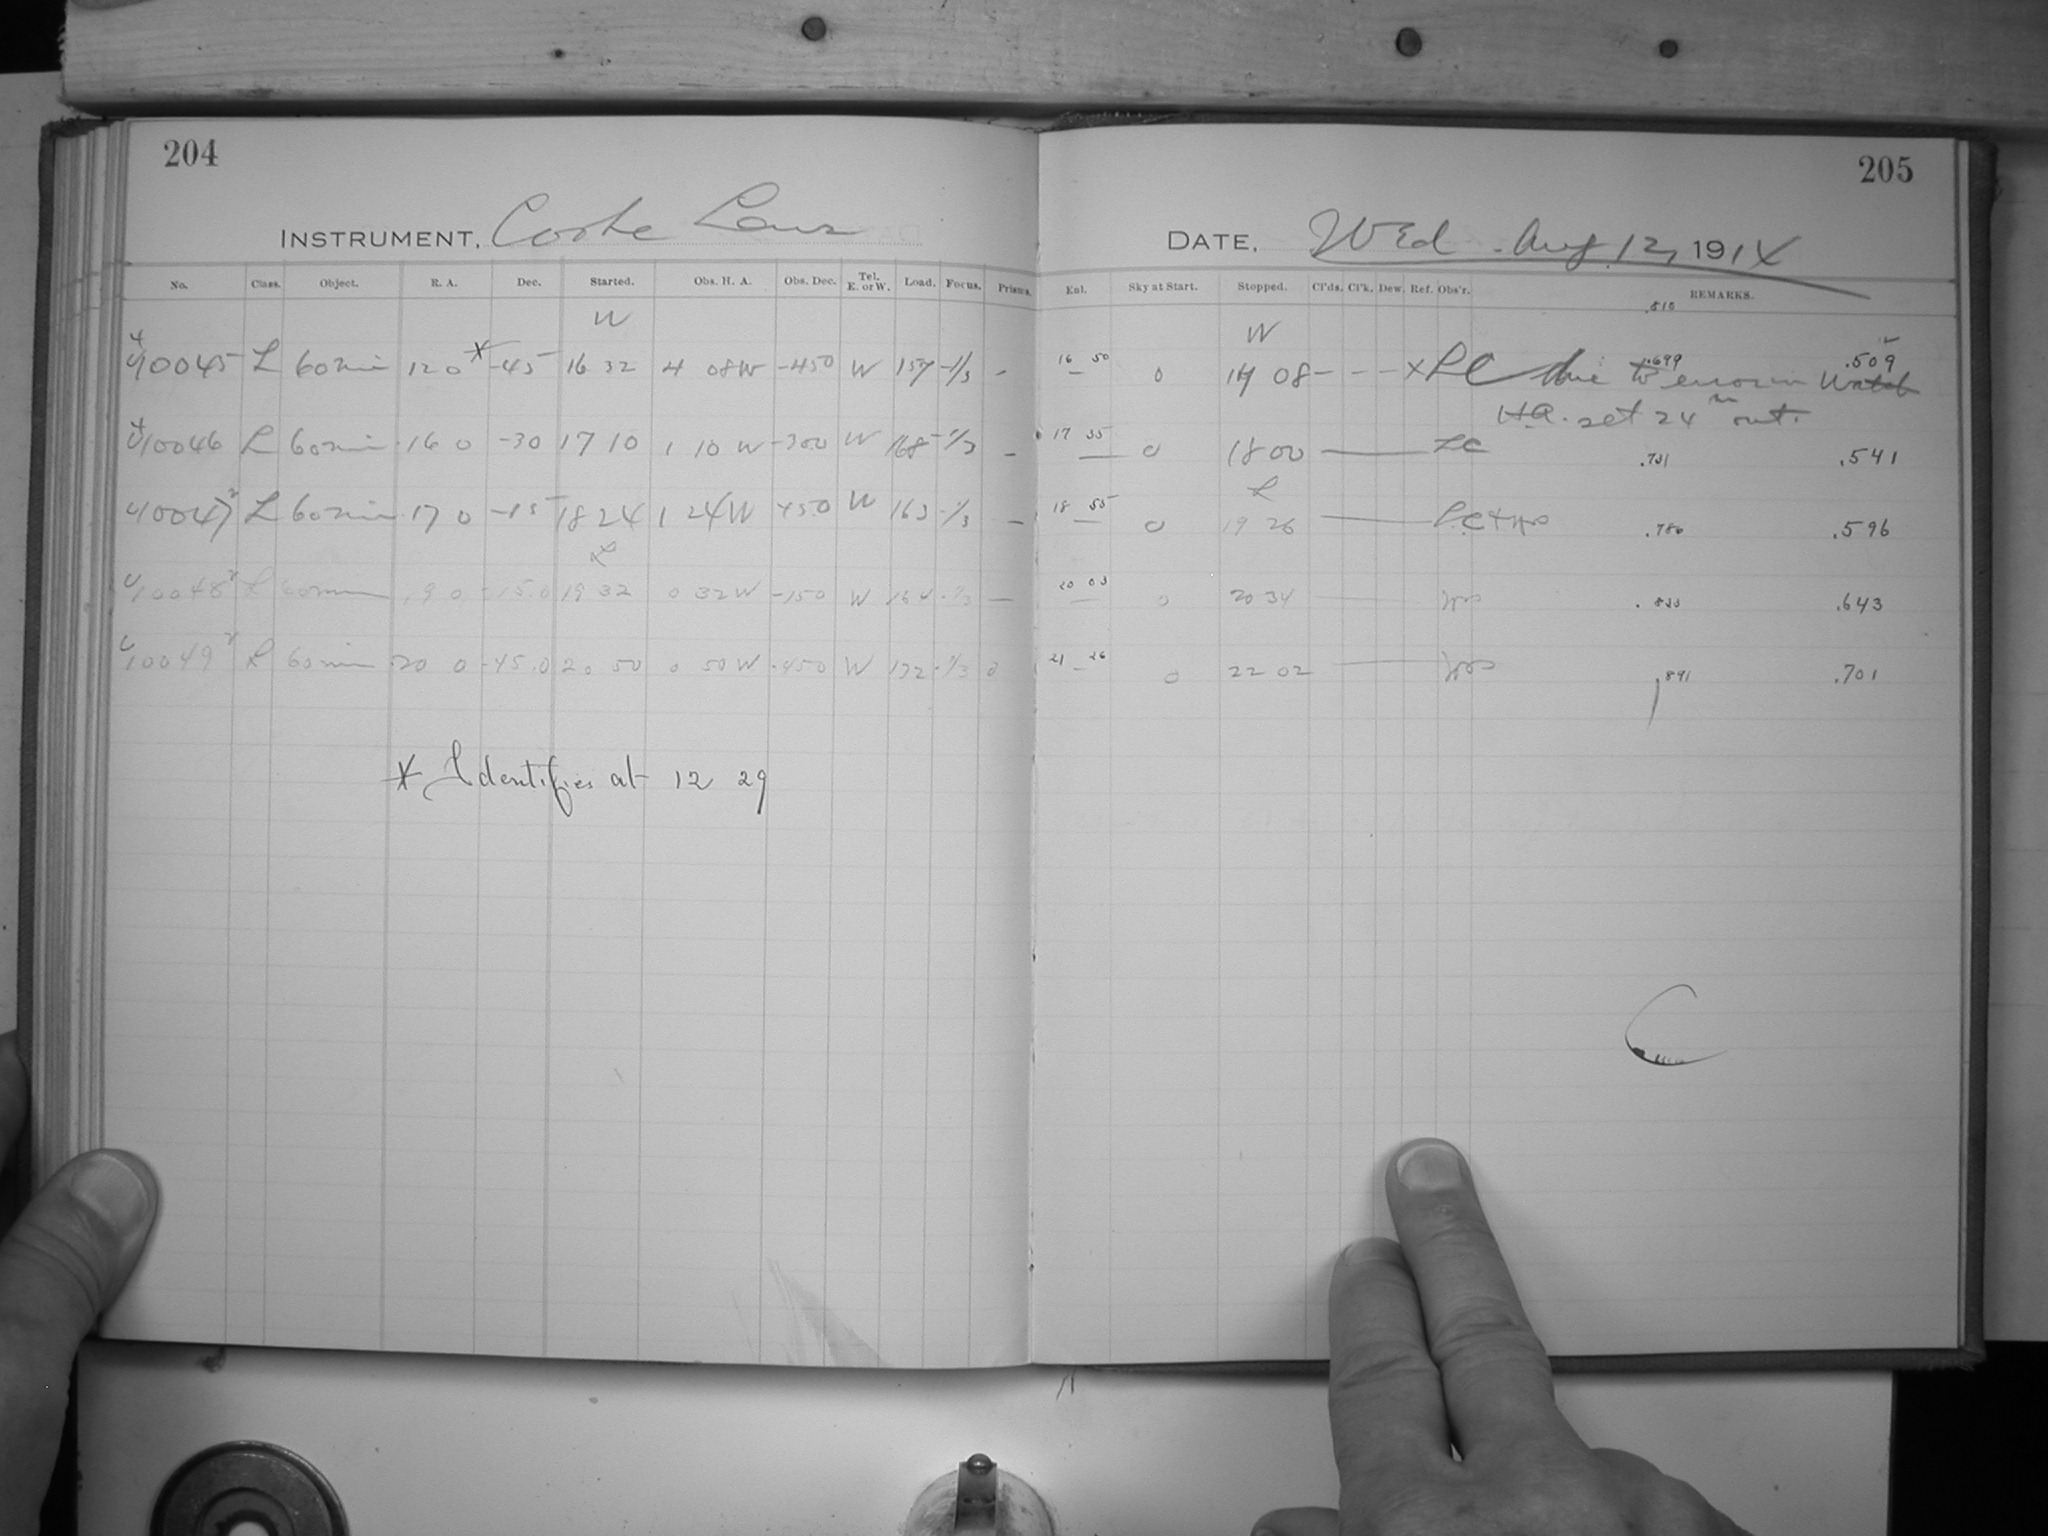 204
INSTRUMENT. Cooke Lens
No. Class. Object. R. A. Dec. Started. Obs. H. A. Obs. Dec. Tel. E. or W. Load. Focus. Prisms.
W
10045 L 60 min 12 0 * -45 16 32 4 08 W -450 W 157 -1/3 -
10046 L 60 min 16 0 -30 17 10 1 10 W -300 W 168 -1/3 -
10047 L 60 min 17 0 -15 18 24 1 24 W -150 W 163 -1/3 -
L
10048 L 60 min 19 0 -15.0 19 32 0 32 W -150 W 164 -1/3 -
10049 L 60 min 20 0 -45.0 20 50 0 50 W -450 W 172 -1/3 0
* Identifies at 12 29
205
DATE. Wed. Aug 12, 1914
Exl. Sky at Start. Stopped. Cl'ds. Cl'k. Dew. Ref. Obs'r. REMARKS.
.510
W
16 50 0 17 08 - - - × LC due to error in Watch .699 .509
H.A. set 24 m out.
17 35 0 18 00 LC .731 .541
L
18 55 0 19 26 .786 .596
20 03 0 20 34 .833 .643
21 26 0 22 02 .891 .701